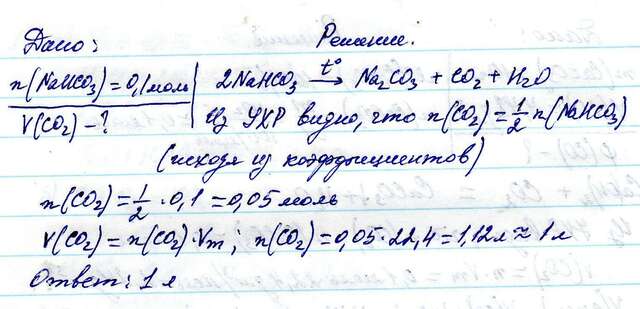 Дано: Решение.
n(NaHCO₃)=0,1моль 2NaHCO₃ →t° Na₂CO₃ + CO₂ + H₂O
V(CO₂)-? Из УХР видно, что n(CO₂)=½n(NaHCO₃)
(исходя из коэффициентов)
n(CO₂)=½·0,1=0,05моль
V(CO₂)=n(CO₂)·Vm; n(CO₂)=0,05·22,4=1,12л≈1л
Ответ: 1л